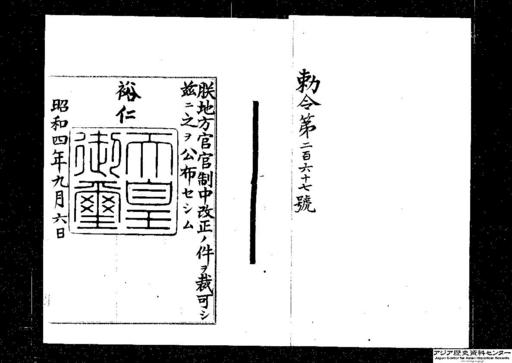 勅令第二百六十七號
朕地方官官制中改正ノ件ヲ裁可シ
茲ニ之ヲ公布セシム
裕仁
天皇
御璽
昭和四年九月六日
アジア歴史資料センター
Japan Center for Asian Historical Records